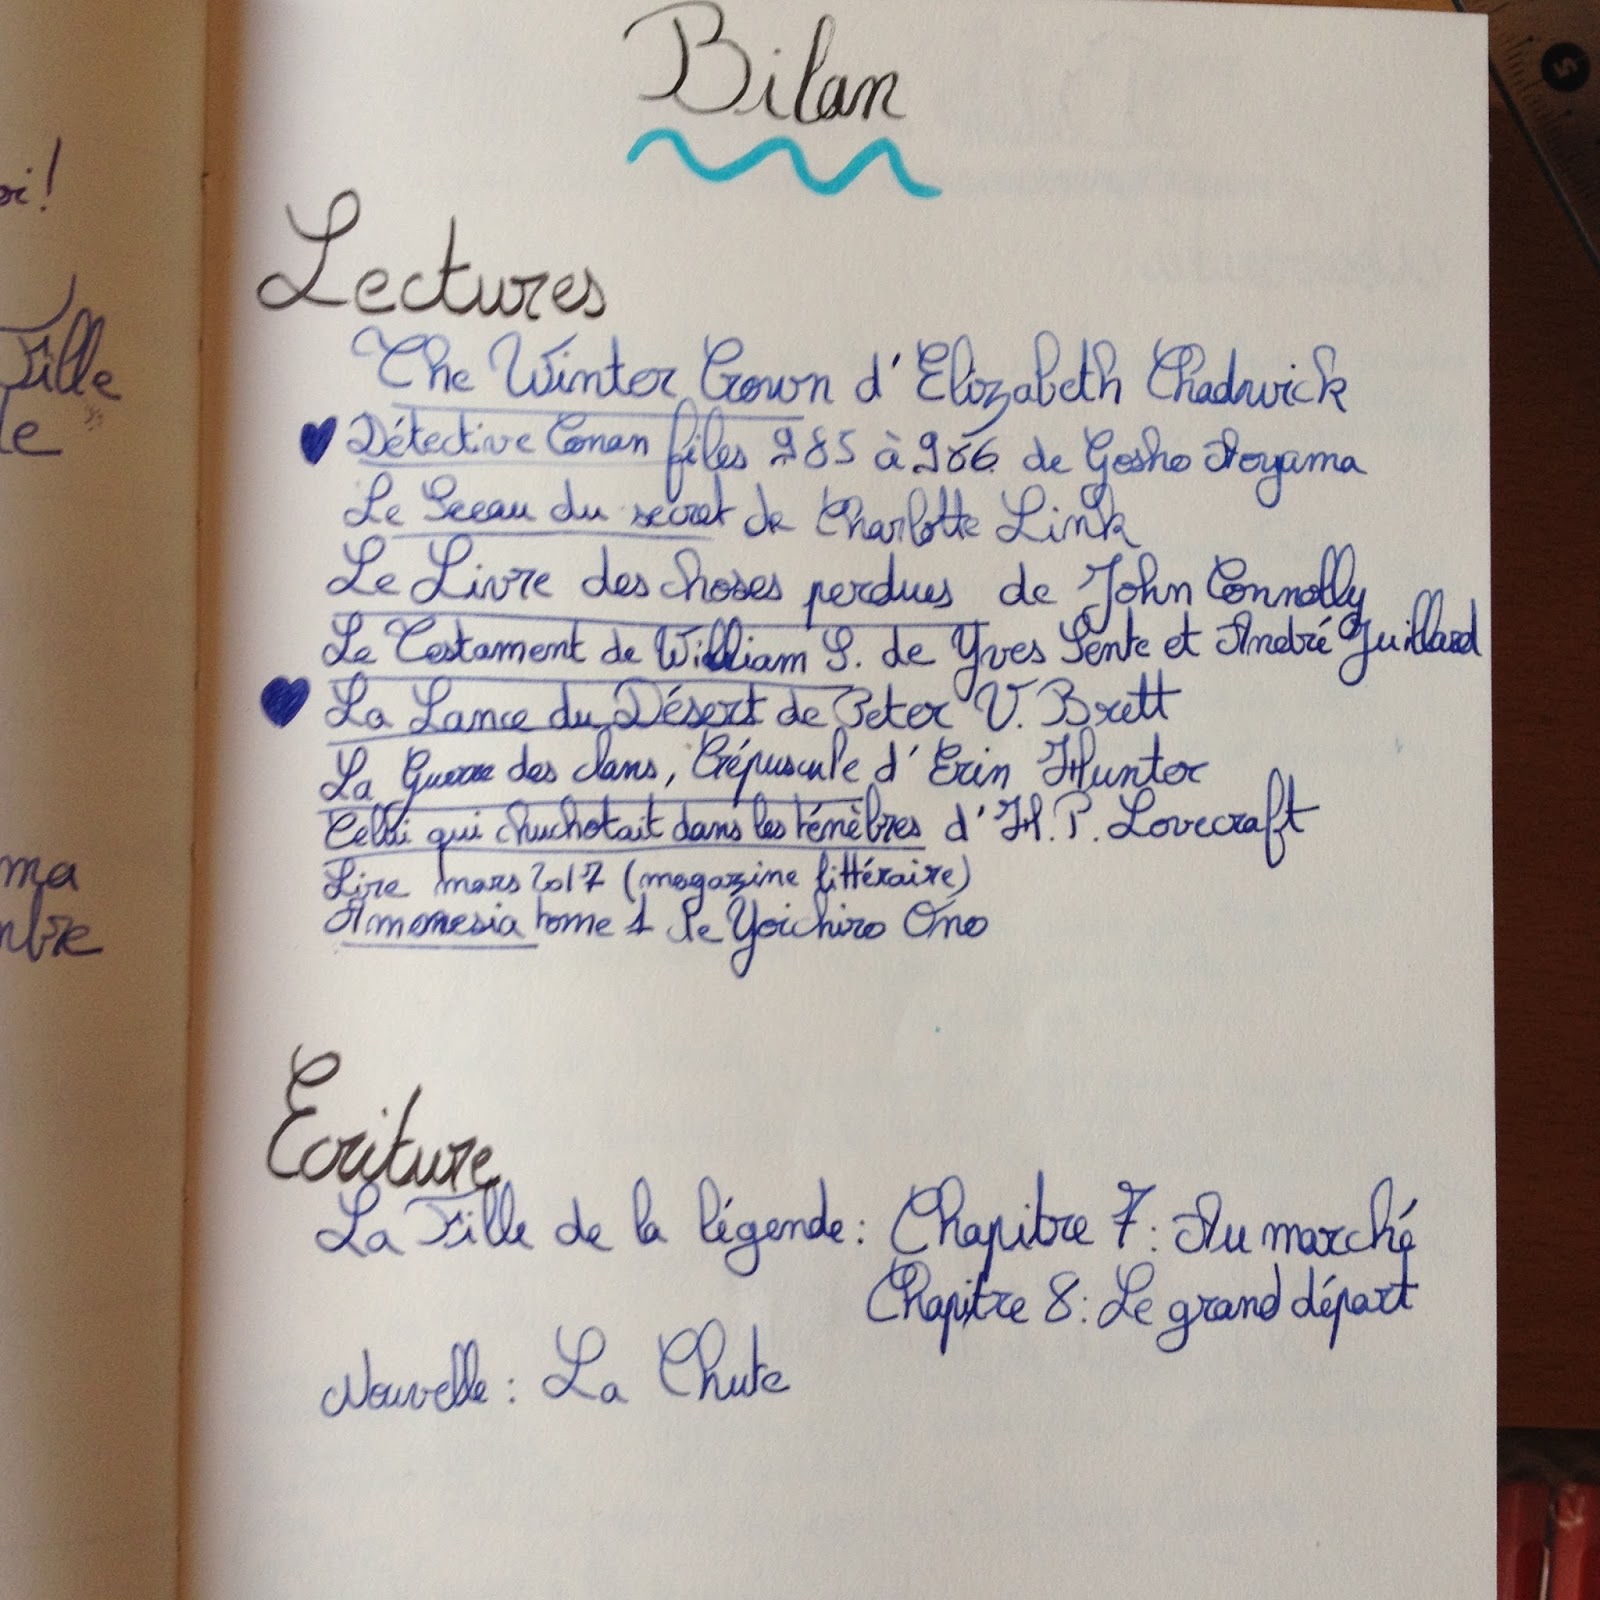 oi!
Fille
le
ma
mbre
Bilan
Lectures
The Winter Crown d'Elizabeth Chadwick
Détective Conan files 985 à 986 de Gosho Aoyama
Le Sceau du secret de Charlotte Link
Le Livre des choses perdues de John Connolly
Le Testament de William S. de Yves Sente et André Juillard
La Lance du Désert de Peter V. Brett
La Guerre des clans, Crépuscule d'Erin Hunter
Celui qui chuchotait dans les ténèbres d'H. P. Lovecraft
Lire mars 2017 (magazine littéraire)
Amenesia tome 1 de Yoichiro Ono
Ecriture
La Fille de la légende : Chapitre 7 : Au marché
Chapitre 8 : Le grand départ
Nouvelle : La Chute
5